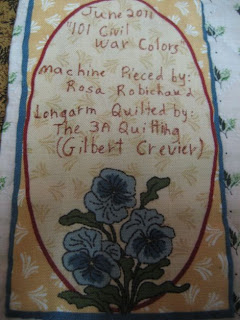 June 2011
"101 Civil
War Colors"
machine Pieced by:
Rosa Robichaud
Longarm Quilted by:
The 3A Quilting
(Gilbert Crevier)